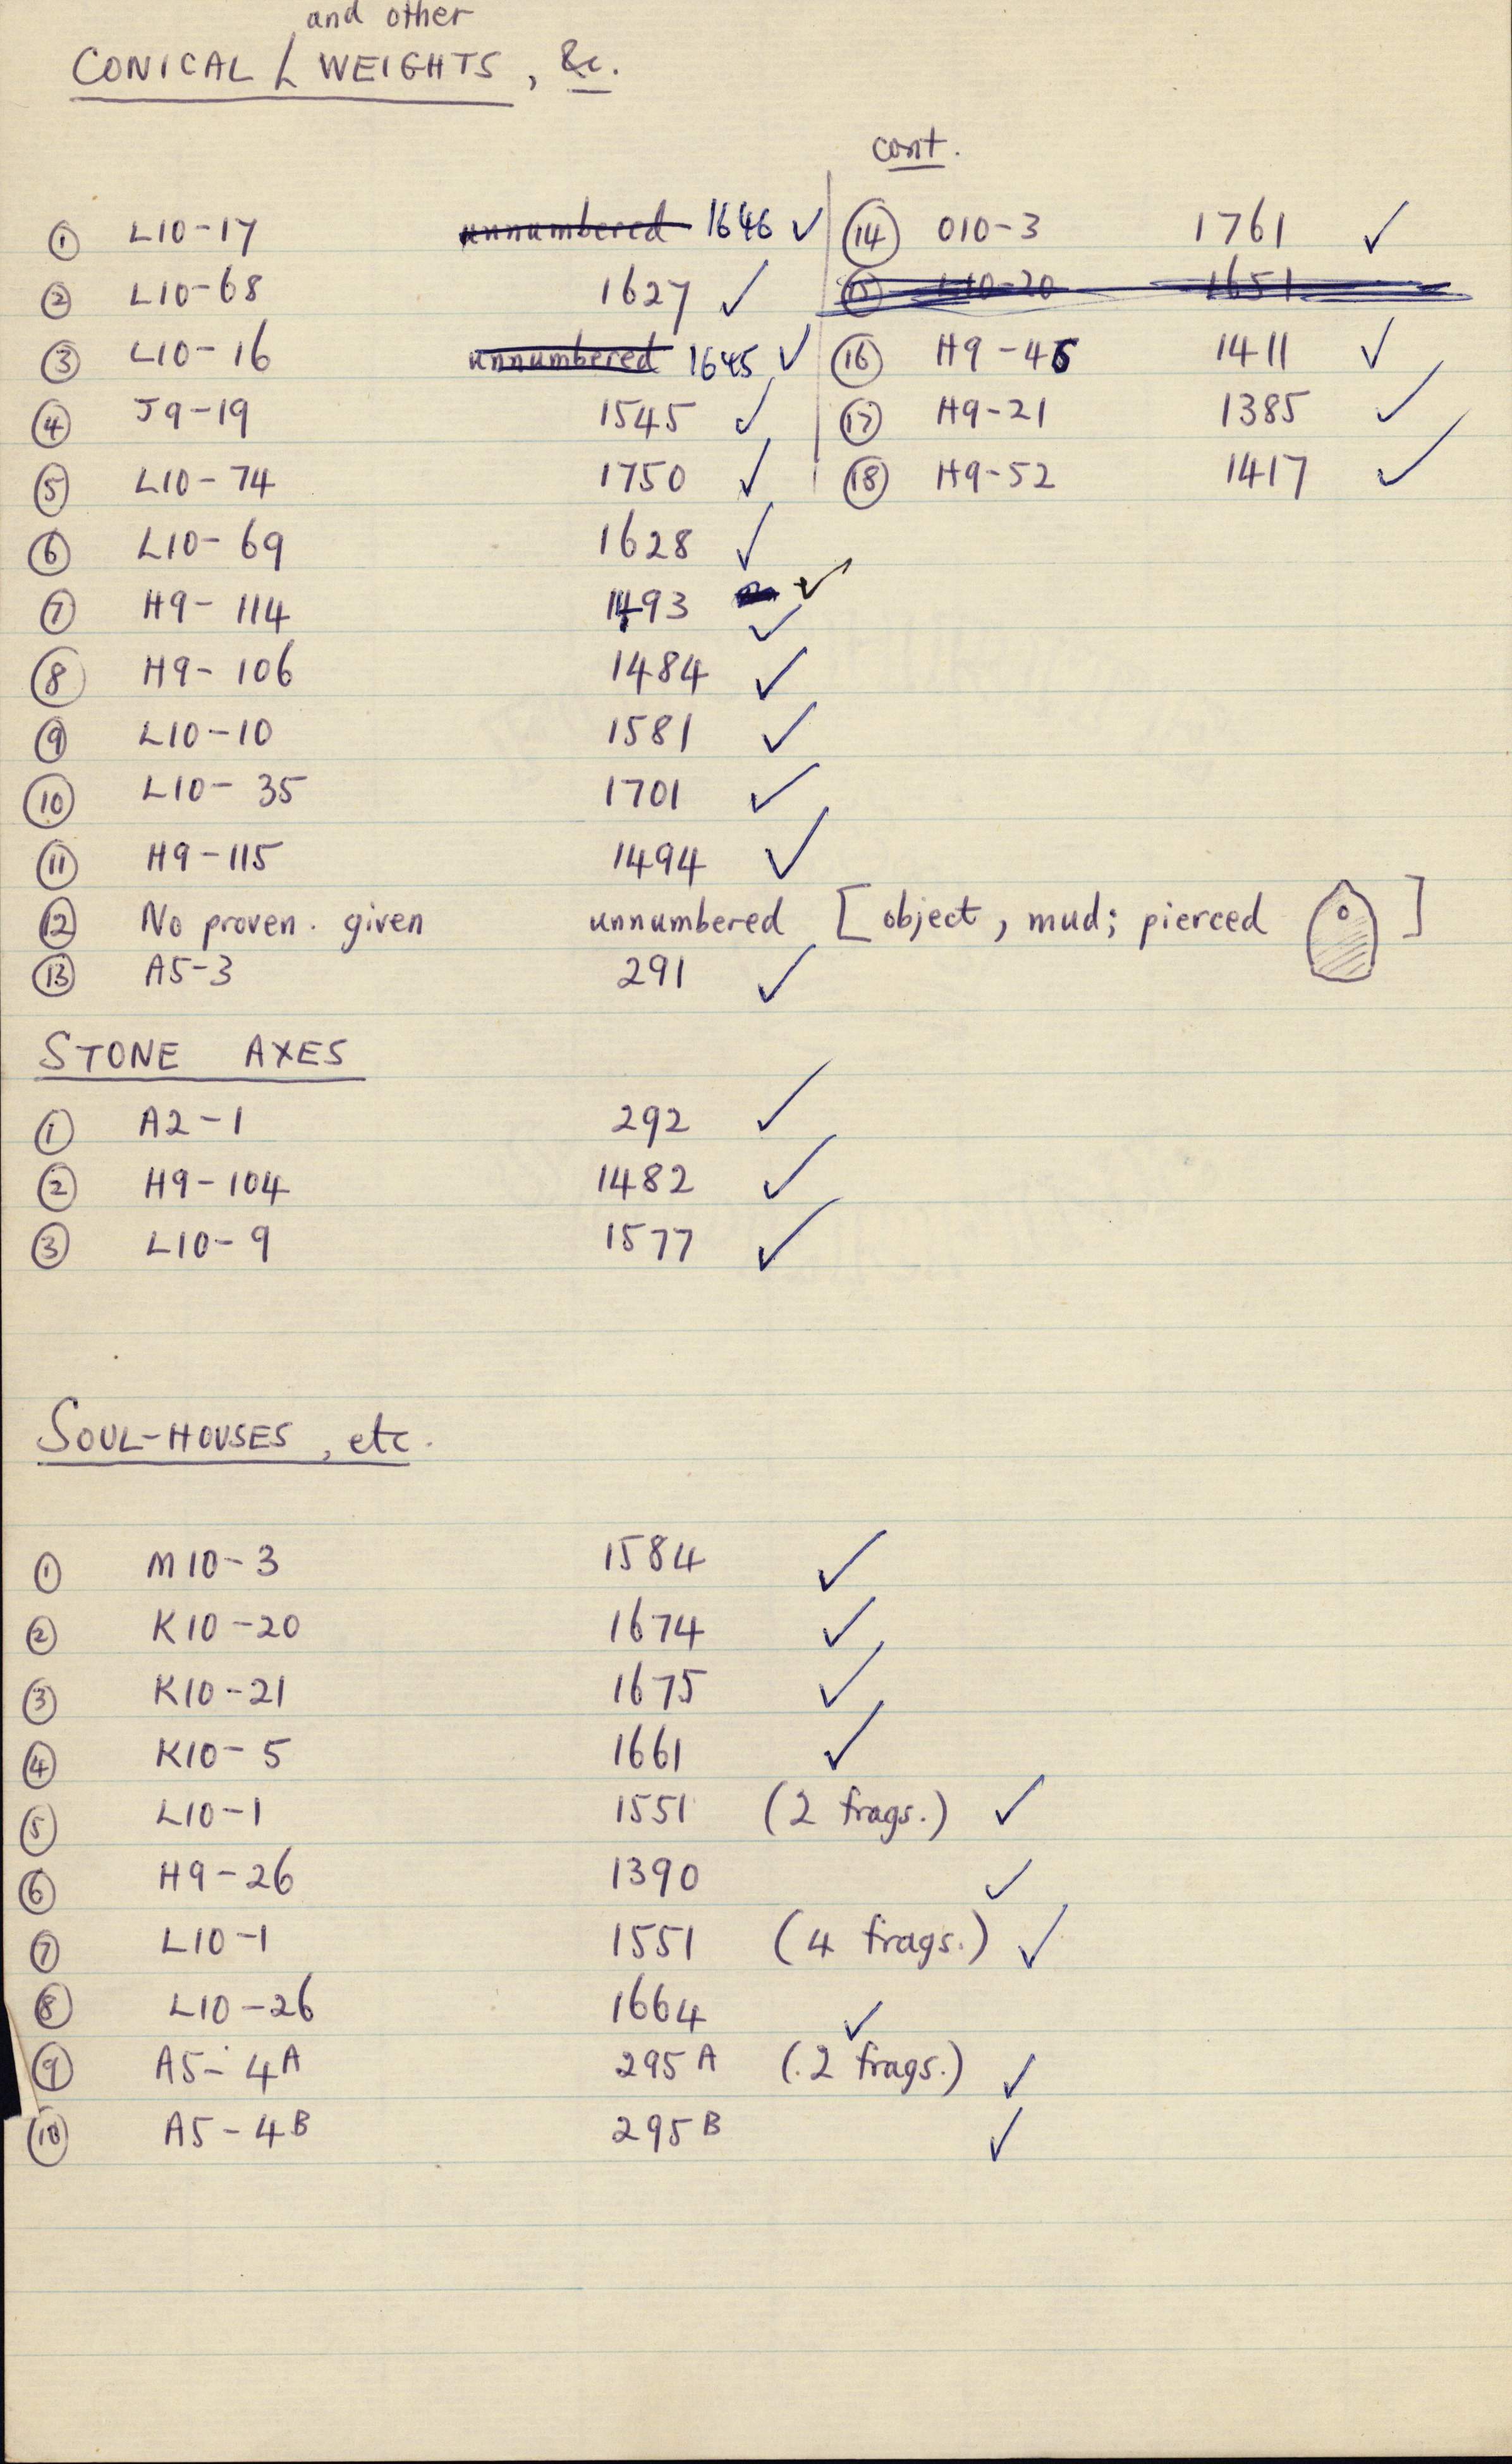 and other
CONICAL / WEIGHTS, &c.
cont.
① L10-17 unnumbered 1646 ✓
② L10-68 1627 ✓
③ L10-16 unnumbered 1645 ✓
④ J9-19 1545 ✓
⑤ L10-74 1750 ✓
⑥ L10-69 1628 ✓
⑦ H9-114 1493 ✓
⑧ H9-106 1484 ✓
⑨ L10-10 1581 ✓
⑩ L10-35 1701 ✓
⑪ H9-115 1494 ✓
⑫ No proven. given unnumbered [object, mud; pierced ]
⑬ A5-3 291 ✓
⑭ O10-3 1761 ✓
⑮ L10-20 1651
⑯ H9-46 1411 ✓
⑰ H9-21 1385 ✓
⑱ H9-52 1417 ✓
STONE AXES
① A2-1 292 ✓
② H9-104 1482 ✓
③ L10-9 1577 ✓
SOUL-HOUSES, etc.
① M10-3 1584 ✓
② K10-20 1674 ✓
③ K10-21 1675 ✓
④ K10-5 1661 ✓
⑤ L10-1 1551 (2 frags.) ✓
⑥ H9-26 1390 ✓
⑦ L10-1 1551 (4 frags.) ✓
⑧ L10-26 1664 ✓
⑨ A5-4A 295A (2 frags.) ✓
⑩ A5-4B 295B ✓